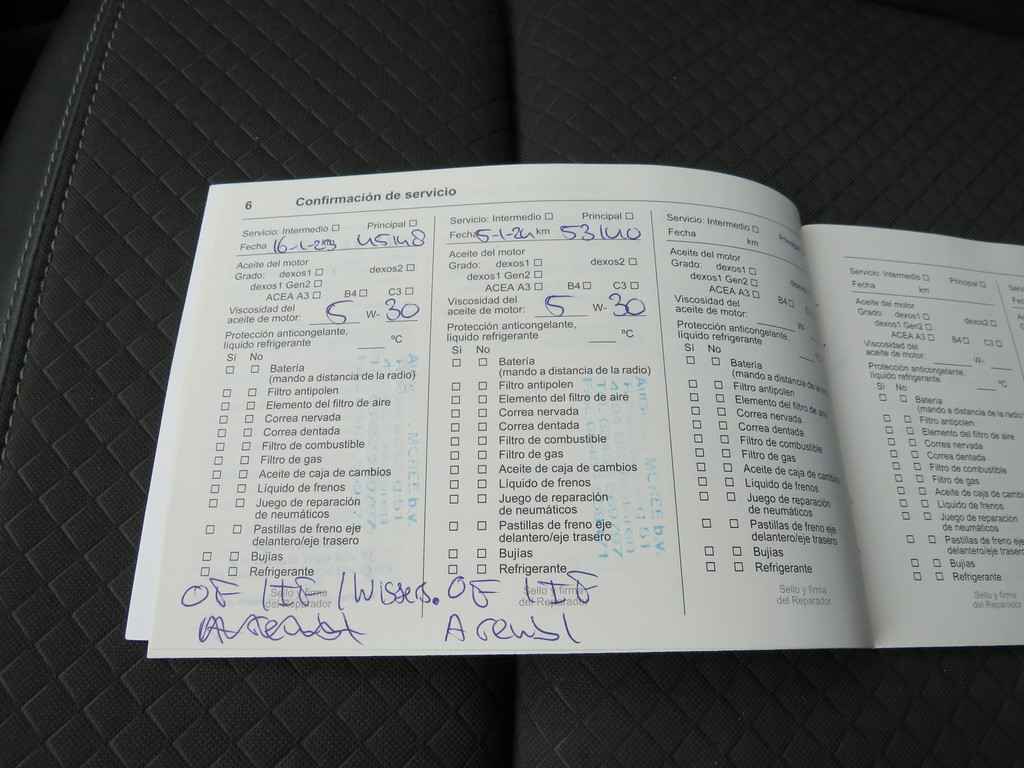 6 Confirmación de servicio
Servicio: Intermedio ☐ Principal ☐
Fecha 16-1-23 km 45148
Aceite del motor
Grado: dexos1 ☐ dexos2 ☐
dexos1 Gen2 ☐
ACEA A3 ☐ B4 ☐ C3 ☐
Viscosidad del
aceite de motor: 5 W- 30
Protección anticongelante,
líquido refrigerante ºC
Sí No
☐ ☐ Batería
(mando a distancia de la radio)
☐ ☐ Filtro antipolen
☐ ☐ Elemento del filtro de aire
☐ ☐ Correa nervada
☐ ☐ Correa dentada
☐ ☐ Filtro de combustible
☐ ☐ Filtro de gas
☐ ☐ Aceite de caja de cambios
☐ ☐ Líquido de frenos
☐ ☐ Juego de reparación
de neumáticos
☐ ☐ Pastillas de freno eje
delantero/eje trasero
☐ ☐ Bujías
☐ ☐ Refrigerante
Sello y firma
del Reparador
Servicio: Intermedio ☐ Principal ☐
Fecha 5-1-24 km 53140
Aceite del motor
Grado: dexos1 ☐ dexos2 ☐
dexos1 Gen2 ☐
ACEA A3 ☐ B4 ☐ C3 ☐
Viscosidad del
aceite de motor: 5 W- 30
Protección anticongelante,
líquido refrigerante ºC
Sí No
☐ ☐ Batería
(mando a distancia de la radio)
☐ ☐ Filtro antipolen
☐ ☐ Elemento del filtro de aire
☐ ☐ Correa nervada
☐ ☐ Correa dentada
☐ ☐ Filtro de combustible
☐ ☐ Filtro de gas
☐ ☐ Aceite de caja de cambios
☐ ☐ Líquido de frenos
☐ ☐ Juego de reparación
de neumáticos
☐ ☐ Pastillas de freno eje
delantero/eje trasero
☐ ☐ Bujías
☐ ☐ Refrigerante
Sello y firma
del Reparador
Servicio: Intermedio ☐ Principal
Fecha km
Aceite del motor
Grado: dexos1 ☐
dexos1 Gen2 ☐
ACEA A3 ☐ B4 ☐
Viscosidad del
aceite de motor: W-
Protección anticongelante,
líquido refrigerante ºC
Sí No
☐ ☐ Batería
(mando a distancia de la radio)
☐ ☐ Filtro antipolen
☐ ☐ Elemento del filtro de aire
☐ ☐ Correa nervada
☐ ☐ Correa dentada
☐ ☐ Filtro de combustible
☐ ☐ Filtro de gas
☐ ☐ Aceite de caja de cambios
☐ ☐ Líquido de frenos
☐ ☐ Juego de reparación
de neumáticos
☐ ☐ Pastillas de freno eje
delantero/eje trasero
☐ ☐ Bujías
☐ ☐ Refrigerante
Sello y firma
del Reparador
Servicio: Intermedio ☐ Principal ☐
Fecha km
Aceite del motor
Grado: dexos1 ☐ dexos2 ☐
dexos1 Gen2 ☐
ACEA A3 ☐ B4 ☐ C3 ☐
Viscosidad del
aceite de motor: W-
Protección anticongelante,
líquido refrigerante ºC
Sí No
☐ ☐ Batería
(mando a distancia de la radio)
☐ ☐ Filtro antipolen
☐ ☐ Elemento del filtro de aire
☐ ☐ Correa nervada
☐ ☐ Correa dentada
☐ ☐ Filtro de combustible
☐ ☐ Filtro de gas
☐ ☐ Aceite de caja de cambios
☐ ☐ Líquido de frenos
☐ ☐ Juego de reparación
de neumáticos
☐ ☐ Pastillas de freno eje
delantero/eje trasero
☐ ☐ Bujías
☐ ☐ Refrigerante
Sello y firma
del Reparador